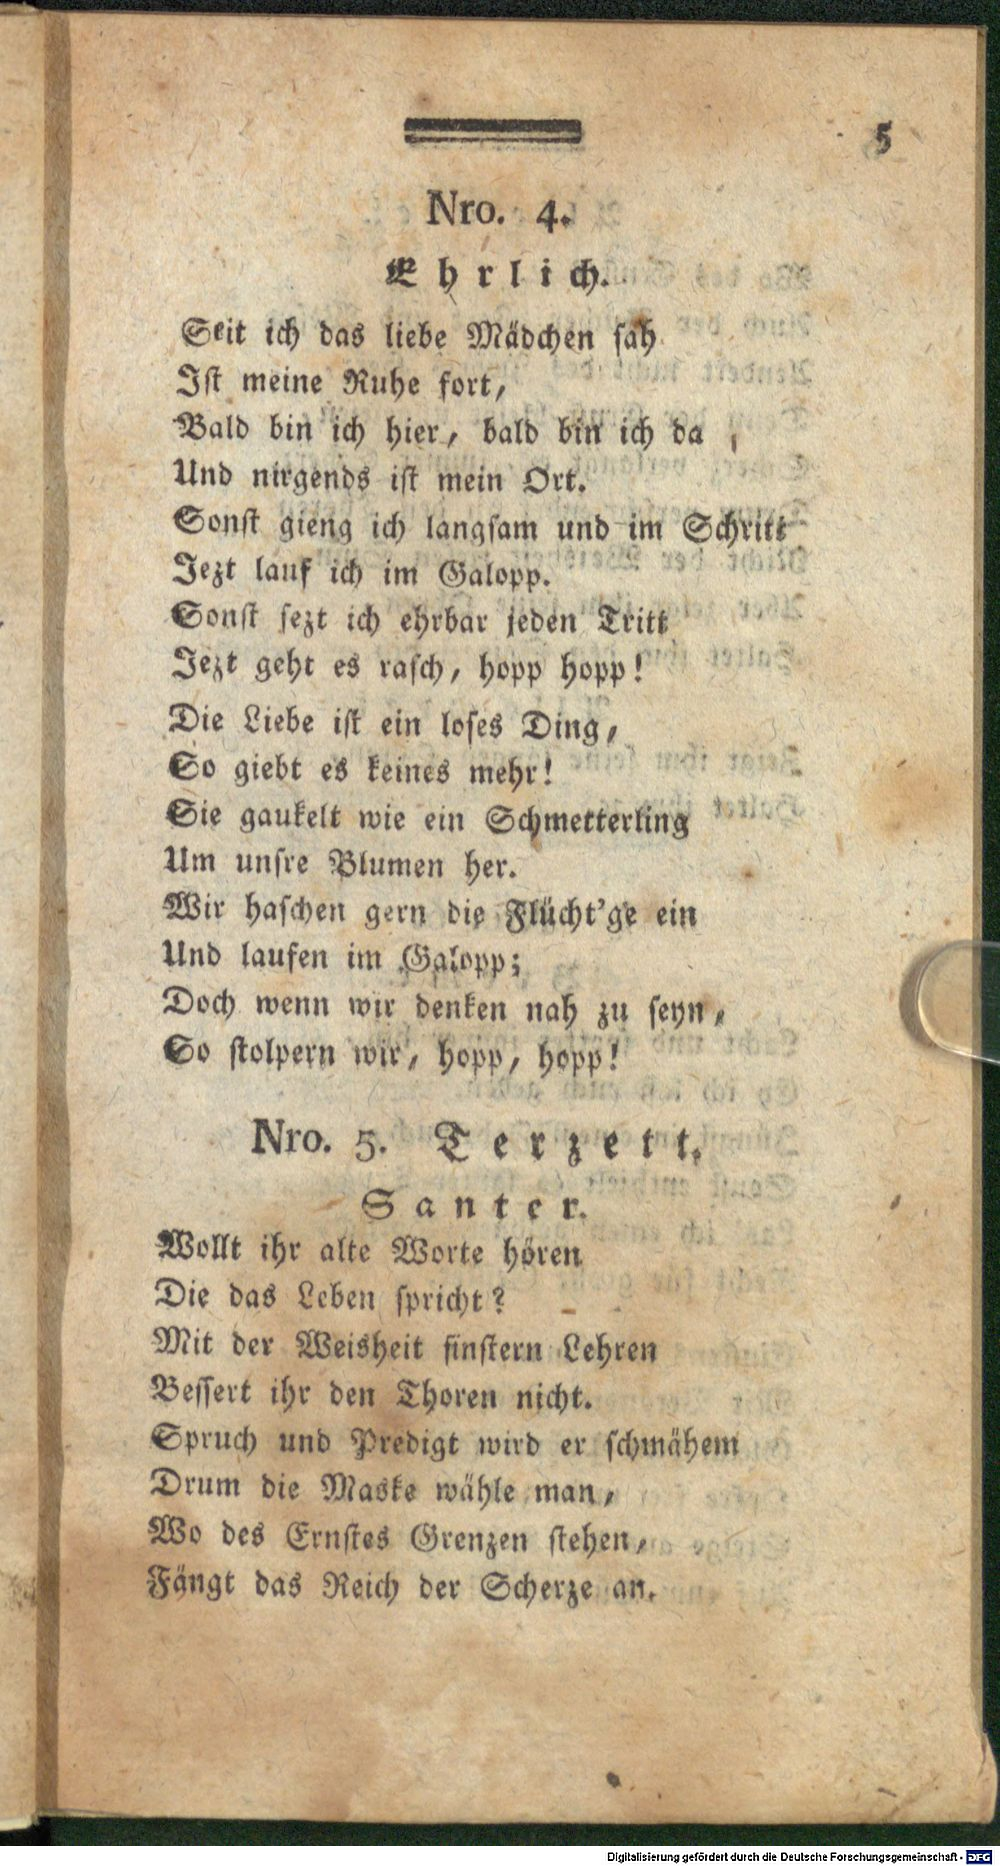 5
Nro. 4.
Ehrlich.
Seit ich das liebe Mädchen sah
Ist meine Ruhe fort,
Bald bin ich hier, bald bin ich da,
Und nirgends ist mein Ort.
Sonst gieng ich langsam und im Schritt
Jezt lauf ich im Galopp.
Sonst sezt ich ehrbar jeden Tritt
Jezt geht es rasch, hopp hopp!
Die Liebe ist ein loses Ding,
So giebt es keines mehr!
Sie gaukelt wie ein Schmetterling
Um unsre Blumen her.
Wir haschen gern die Flücht'ge ein
Und laufen im Galopp;
Doch wenn wir denken nah zu seyn,
So stolpern wir, hopp, hopp!
Nro. 5. Terzett.
Santer.
Wollt ihr alte Worte hören
Die das Leben spricht?
Mit der Weisheit finstern Lehren
Bessert ihr den Thoren nicht.
Spruch und Predigt wird er schmähem
Drum die Maske wähle man,
Wo des Ernstes Grenzen stehen,
Fängt das Reich der Scherze an.
Digitalisierung gefördert durch die Deutsche Forschungsgemeinschaft - DFG